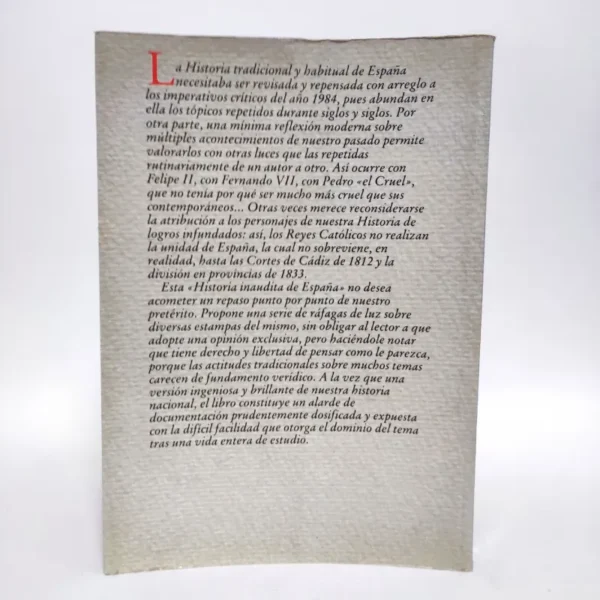 La Historia tradicional y habitual de España
necesitaba ser revisada y repensada con arreglo a
los imperativos críticos del año 1984, pues abundan en
ella los tópicos repetidos durante siglos y siglos. Por
otra parte, una mínima reflexión moderna sobre
múltiples acontecimientos de nuestro pasado permite
valorarlos con otras luces que las repetidas
rutinariamente de un autor a otro. Así ocurre con
Felipe II, con Fernando VII, con Pedro «el Cruel»,
que no tenía por qué ser mucho más cruel que sus
contemporáneos... Otras veces merece reconsiderarse
la atribución a los personajes de nuestra Historia de
logros infundados: así, los Reyes Católicos no realizan
la unidad de España, la cual no sobreviene, en
realidad, hasta las Cortes de Cádiz de 1812 y la
división en provincias de 1833.
Esta «Historia inaudita de España» no desea
acometer un repaso punto por punto de nuestro
pretérito. Propone una serie de ráfagas de luz sobre
diversas estampas del mismo, sin obligar al lector a que
adopte una opinión exclusiva, pero haciéndole notar
que tiene derecho y libertad de pensar como le parezca,
porque las actitudes tradicionales sobre muchos temas
carecen de fundamento verídico. A la vez que una
versión ingeniosa y brillante de nuestra historia
nacional, el libro constituye un alarde de
documentación prudentemente dosificada y expuesta
con la difícil facilidad que otorga el dominio del tema
tras una vida entera de estudio.